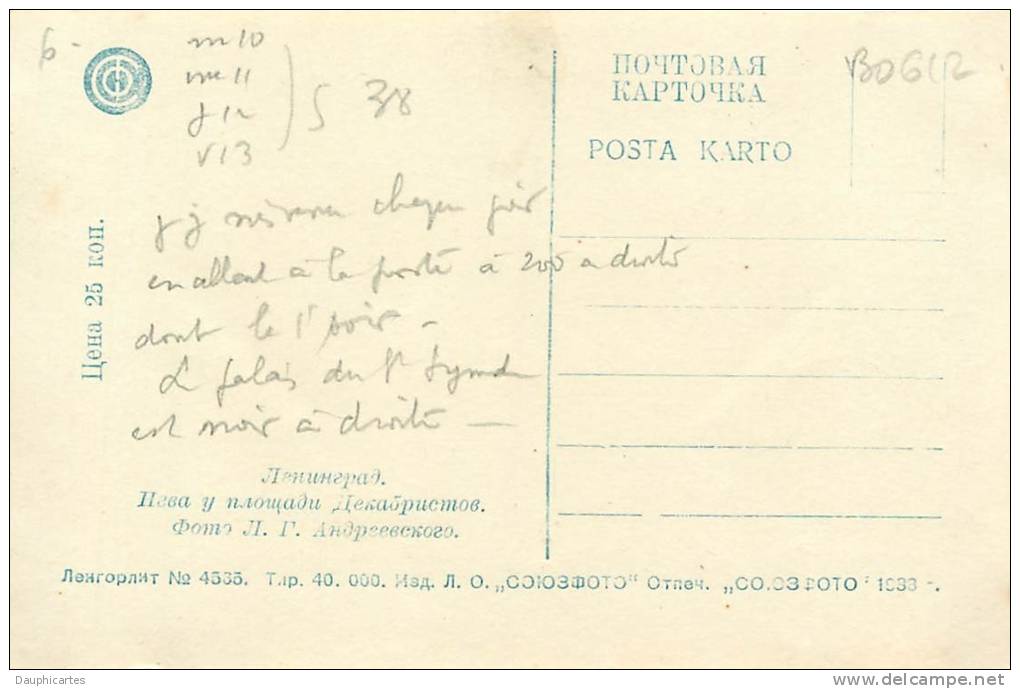 6-
m 10
me 11
j 12
v 13
S 38
ПОЧТОВАЯ
КАРТОЧКА
POSTA KARTO
Цена 25 коп.
chaque
en allant à la poste à 200 a droite
dont le 1r soir -
palais du
est noir à droite —
Ленинград.
Нева у площади Декабристов.
Фото Л. Г. Андреевского.
Ленгорлит № 4535. Тир. 40.000. Изд. Л. О. „СОЮЗФОТО“ Отпеч. „СОЮЗФОТО“ 1933 г.
Dauphicartes
www.delcampe.net